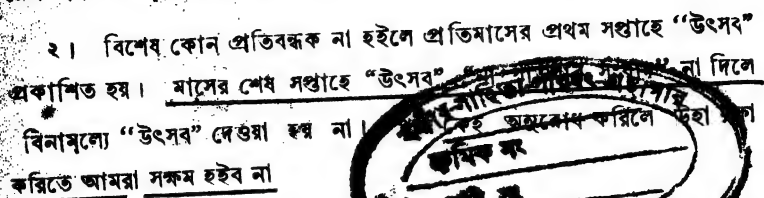 ২। বিশেষ কোন প্রতিবন্ধক না হইলে প্রতিমাসের প্রথম সপ্তাহে “উৎসব”
প্রকাশিত হয়। মাসের শেষ সপ্তাহে “উৎসব” না দিলে
বিনামূল্যে “উৎসব” দেওয়া হয় না। কেহ অনুরোধ করিলে উহা
করিতে আমরা সক্ষম হইব না
ক্রমিক নং